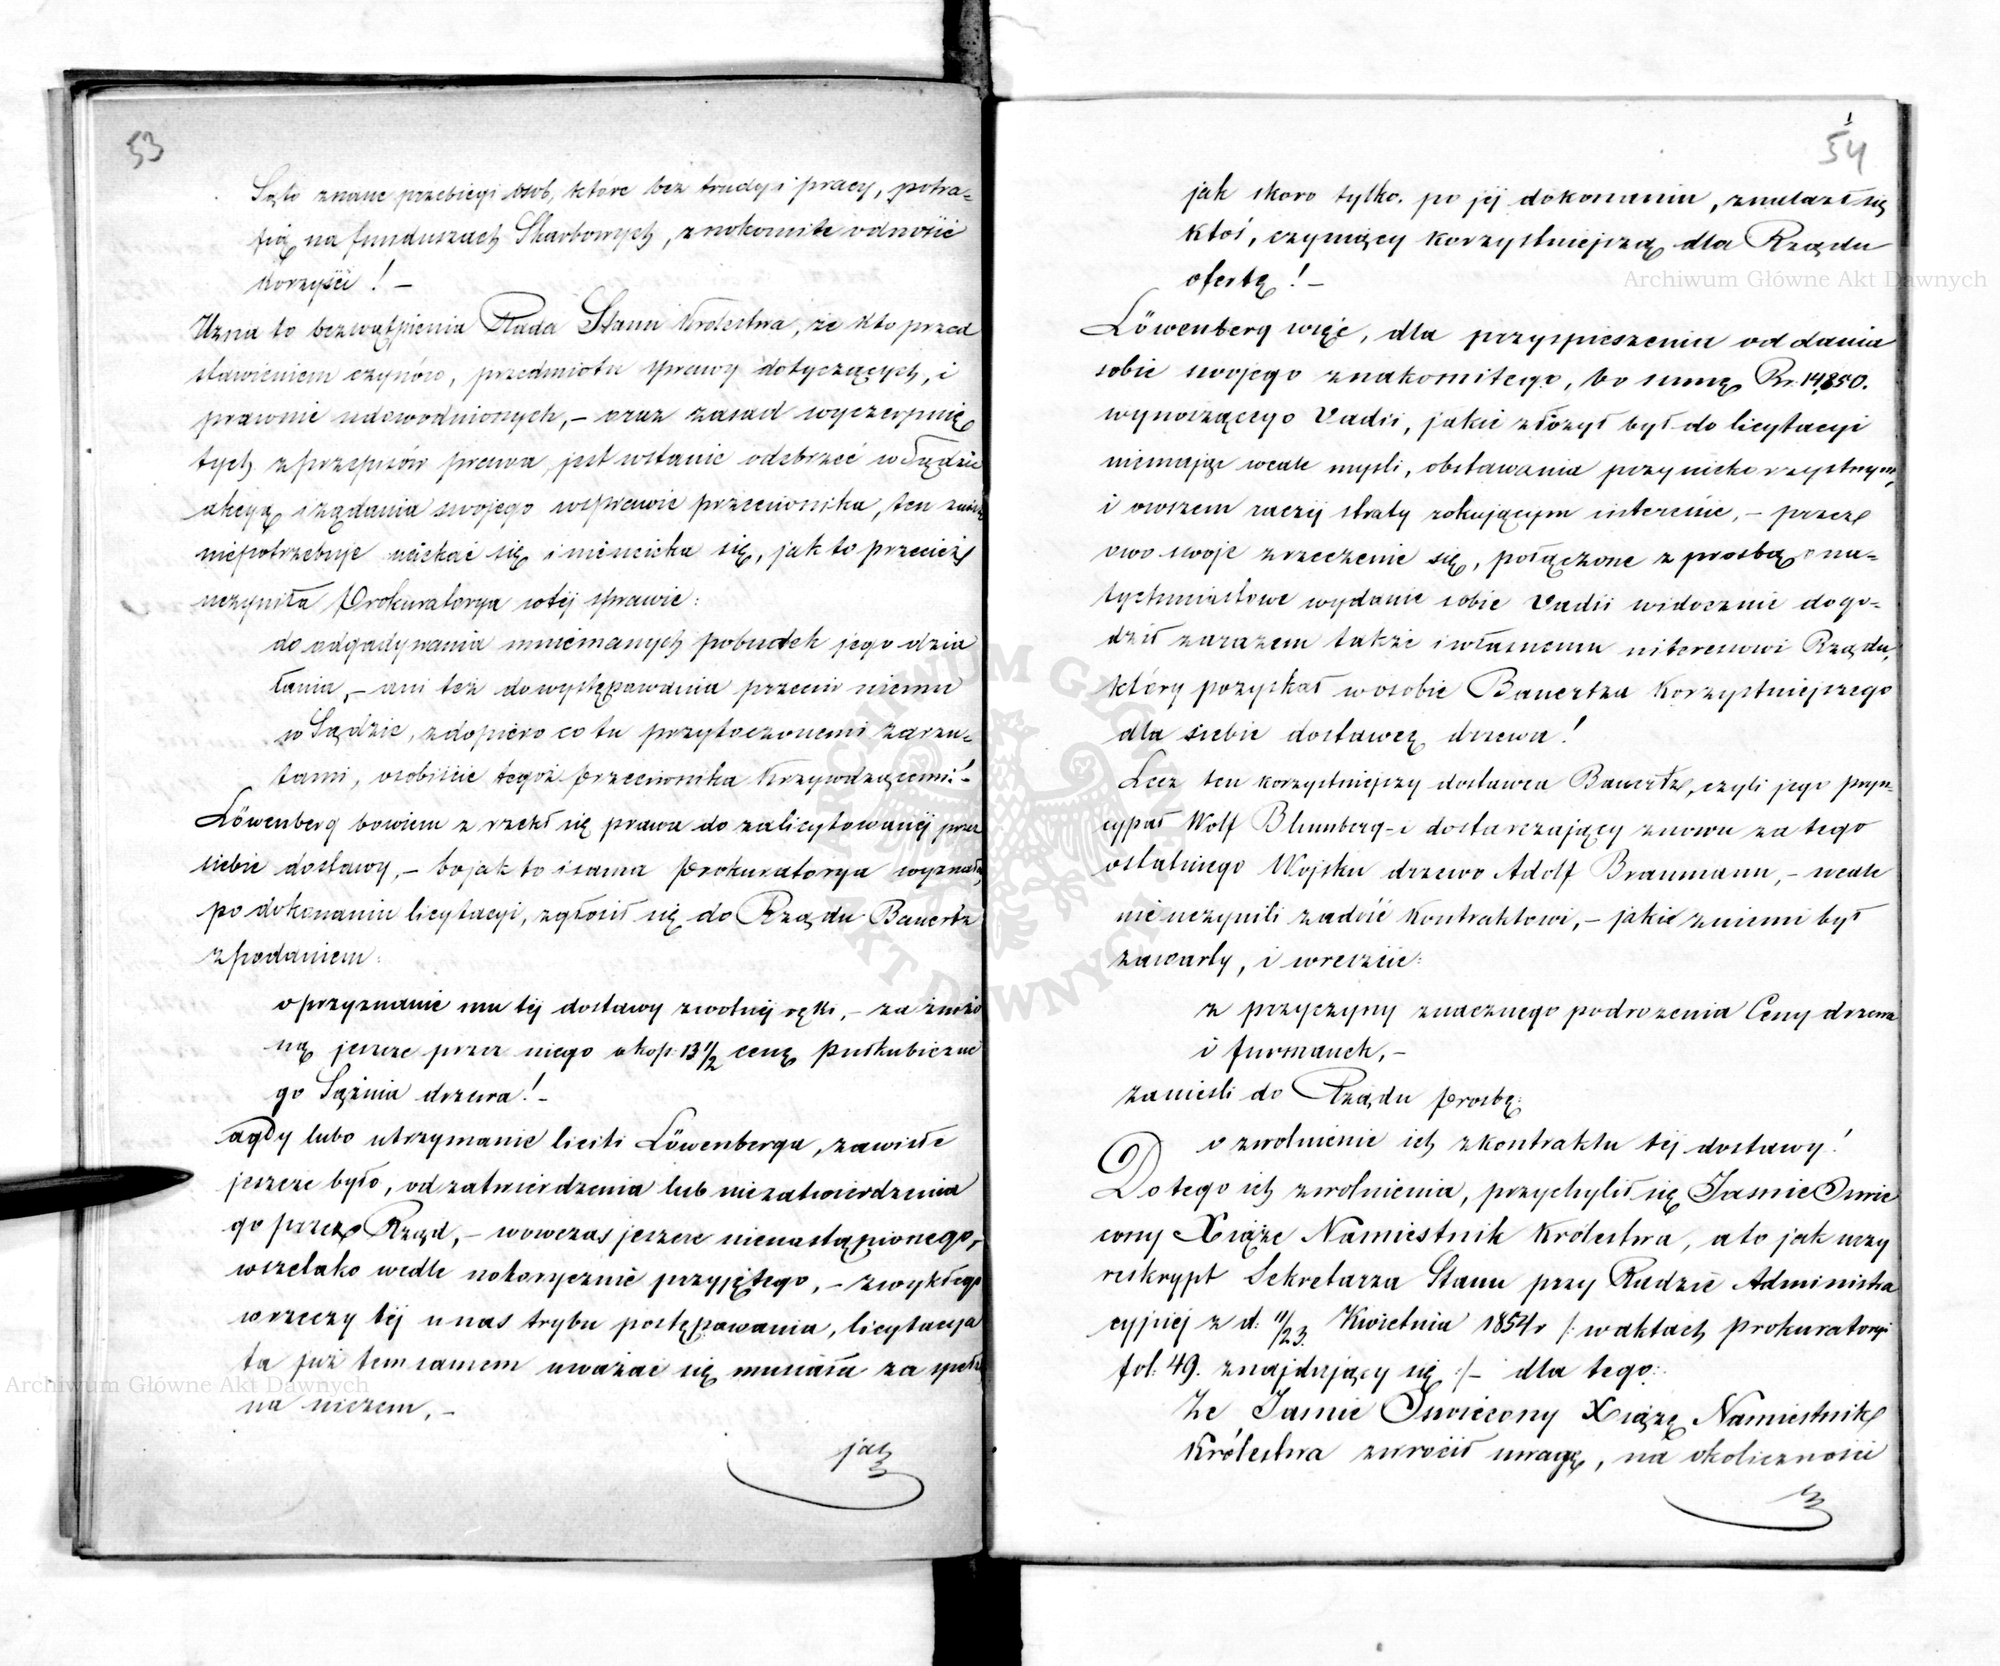 53
Są to znane przebiegi osób, które bez trudu i pracy, potra-
fią na funduszach Skarbowych, znakomite odnosić
korzyści! –
Uzna to bezwątpienia Rada Stanu Królestwa, że kto przed
stawieniem czynów, przedmiotu sprawy dotyczących, i
prawnie udowodnionych, – oraz zasad wyczerpnię
tych z przepisów prawa, jest wstanie odeprzeć w Sądzie
akcyą i żądania swojego wsprawie przeciwnika, ten
niepotrzebuje uciekać się i nieucieka się, jak to przecież
uczyniła Prokuratorya w téj sprawie:
do odgadywania mniemanych pobudek jego dzia
łania, – ani też do występowania przeciw niemu
w Sądzie, z dopiero co tu przytoczonemi zarzu-
tami, osobiście tegoż przeciwnika krzywdzącemi! –
Löwenberg bowiem zrzekł się prawa do zalicytowanéj przez
siebie dostawy, – bo jak to i sama Prokuratorya wyznała,
po dokonaniu licytacyi, zgłosił się do Rządu Bauertz
z podaniem:
o przyznanie mu téj dostawy z wolnéj ręki, – za zniżo
ną jeszcze przez niego o kop: 13 1/2 cenę pułkubiczne
go Sążnia drzewa! –
a gdy lubo utrzymanie liciti Löwenberga, zawisłe
jeszcze było, od zatwierdzenia lub niezatwierdzenia
go przez Rząd, – wówczas jeszcze nienastąpionego,
wszelako wedle notorycznie przyjętego, – zwykłego
w rzeczy téj u nas trybu postępowania, licytacya
ta już tem samem uważać się musiała za speł
na niczem, –
jak
54
jak skoro tylko, po jéj dokonaniu, znalazł się
ktoś, czyniący korzystniejszą dla Rządu
ofertę! –
Löwenberg więc, dla przyspieszenia oddania
sobie swojego znakomitego, bo sumę Rs. 14,850.
wynoszącego Vadii, jakie złożył był do licytacyi
niemając wcale myśli, obstawania przy niekorzystnym,
i owszem raczéj straty rokującym interesie, – przez
owo swoje zrzeczenie się, połączone z prośbą o na-
tychmiastowe wydanie sobie Vadii widocznie dogo-
dził zarazem także i własnemu interesowi Rządu,
który pozyskał w osobie Bauertza korzystniejszego
dla siebie dostawcę drzewa!
Lecz ten korzystniejszy dostawca Bauertz, czyli jego pryn-
cypał Wolf Blumberg – i dostarczający znowu za tego
ostatniego Wojsku drzewo Adolf Braumann, – wcale
nie uczynili zadość kontraktowi, – jaki z niemi był
zawarty, i wreszcie:
z przyczyny znacznego podrożenia Ceny drzewa
i furmanek, –
zanieśli do Rządu prośbę:
o zwolnienie ich z kontraktu téj dostawy!
Do tego ich zwolnienia, przychylił się Jaśnie Oświe
cony Xiąże Namiestnik Królestwa, a to jak uczy
reskrypt Sekretarza Stanu przy Radzie Administra
cyjnéj z d: 11/23. Kwietnia 1854 r /: w aktach Prokuratoryi
fol: 49. znajdujący się :/ – dla tego:
Że Jaśnie Oświecony Xiążę Namiestnik
Królestwa zwrócił uwagę, na okoliczności